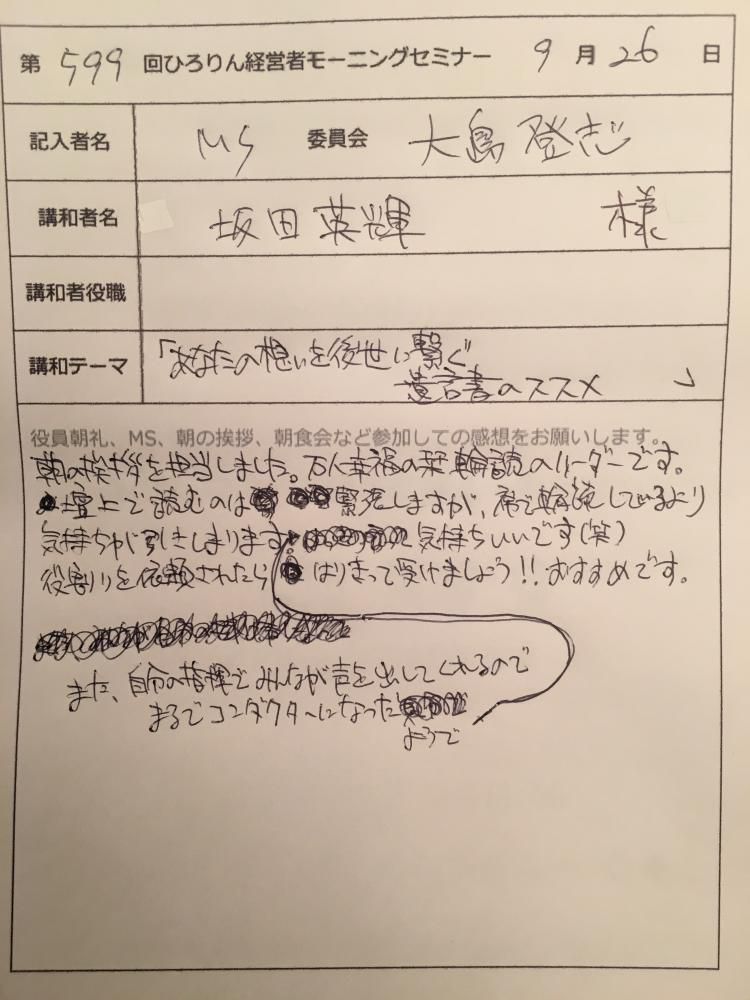 第 599 回ひろりん経営者モーニングセミナー 9 月 26 日
記入者名 MS 委員会 大島 登志
講和者名 坂田 英輝 様
講和者役職
講和テーマ 「あなたの想いを後世に繋ぐ
遺言書のススメ 」
役員朝礼、MS、朝の挨拶、朝食会など参加しての感想をお願いします。
朝の挨拶を担当しました。万人幸福の栞輪読のリーダーです。
壇上で読むのは 緊張しますが、席で輪読しているより
気持ちが引きしまります。 気持ちいいです(笑)
役割りを依頼されたら はりきって受けましょう!! おすすめです。
また、自分の指揮でみんなが声を出してくれるので
まるでコンダクターになった
ようで